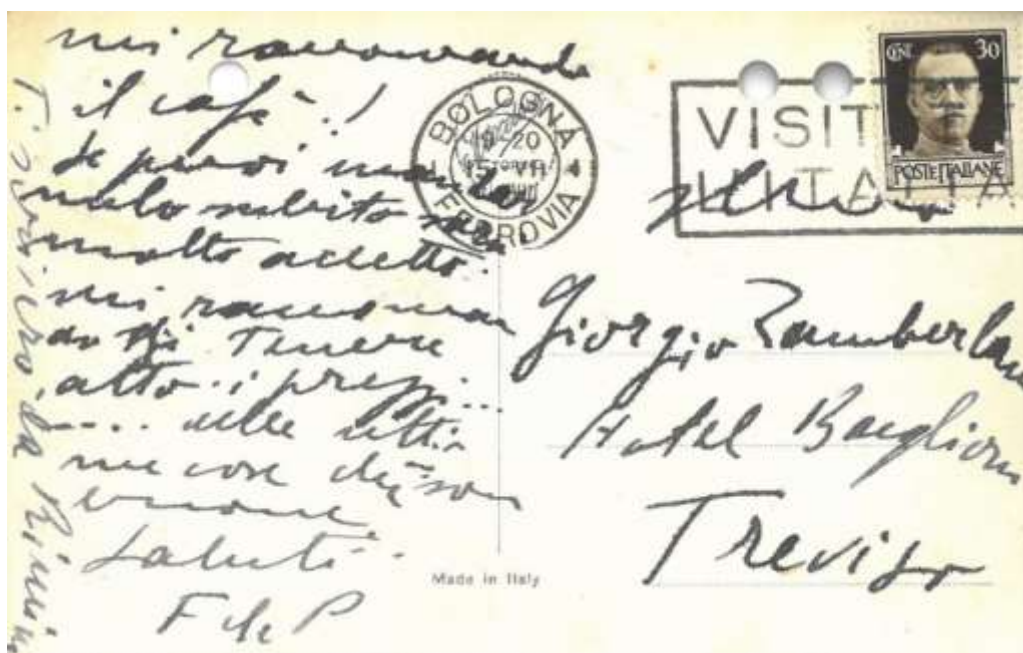 mi raccomando
il cafè!
Se puoi mandar
melo subito sarà
molto accetto.
mi raccoman
do di Tenere
alto i prezzi...
.... nelle ulti
me cose
Saluti.
F de P
T. scrivero da Rimini
BOLOGNA
19-20
15 VII
FERROVIA
VISIT
L'ITALIA
CENT. 30
POSTE ITALIANE
Giorgio Zamberlan
Hotel Baglioni
Treviso
Made in Italy